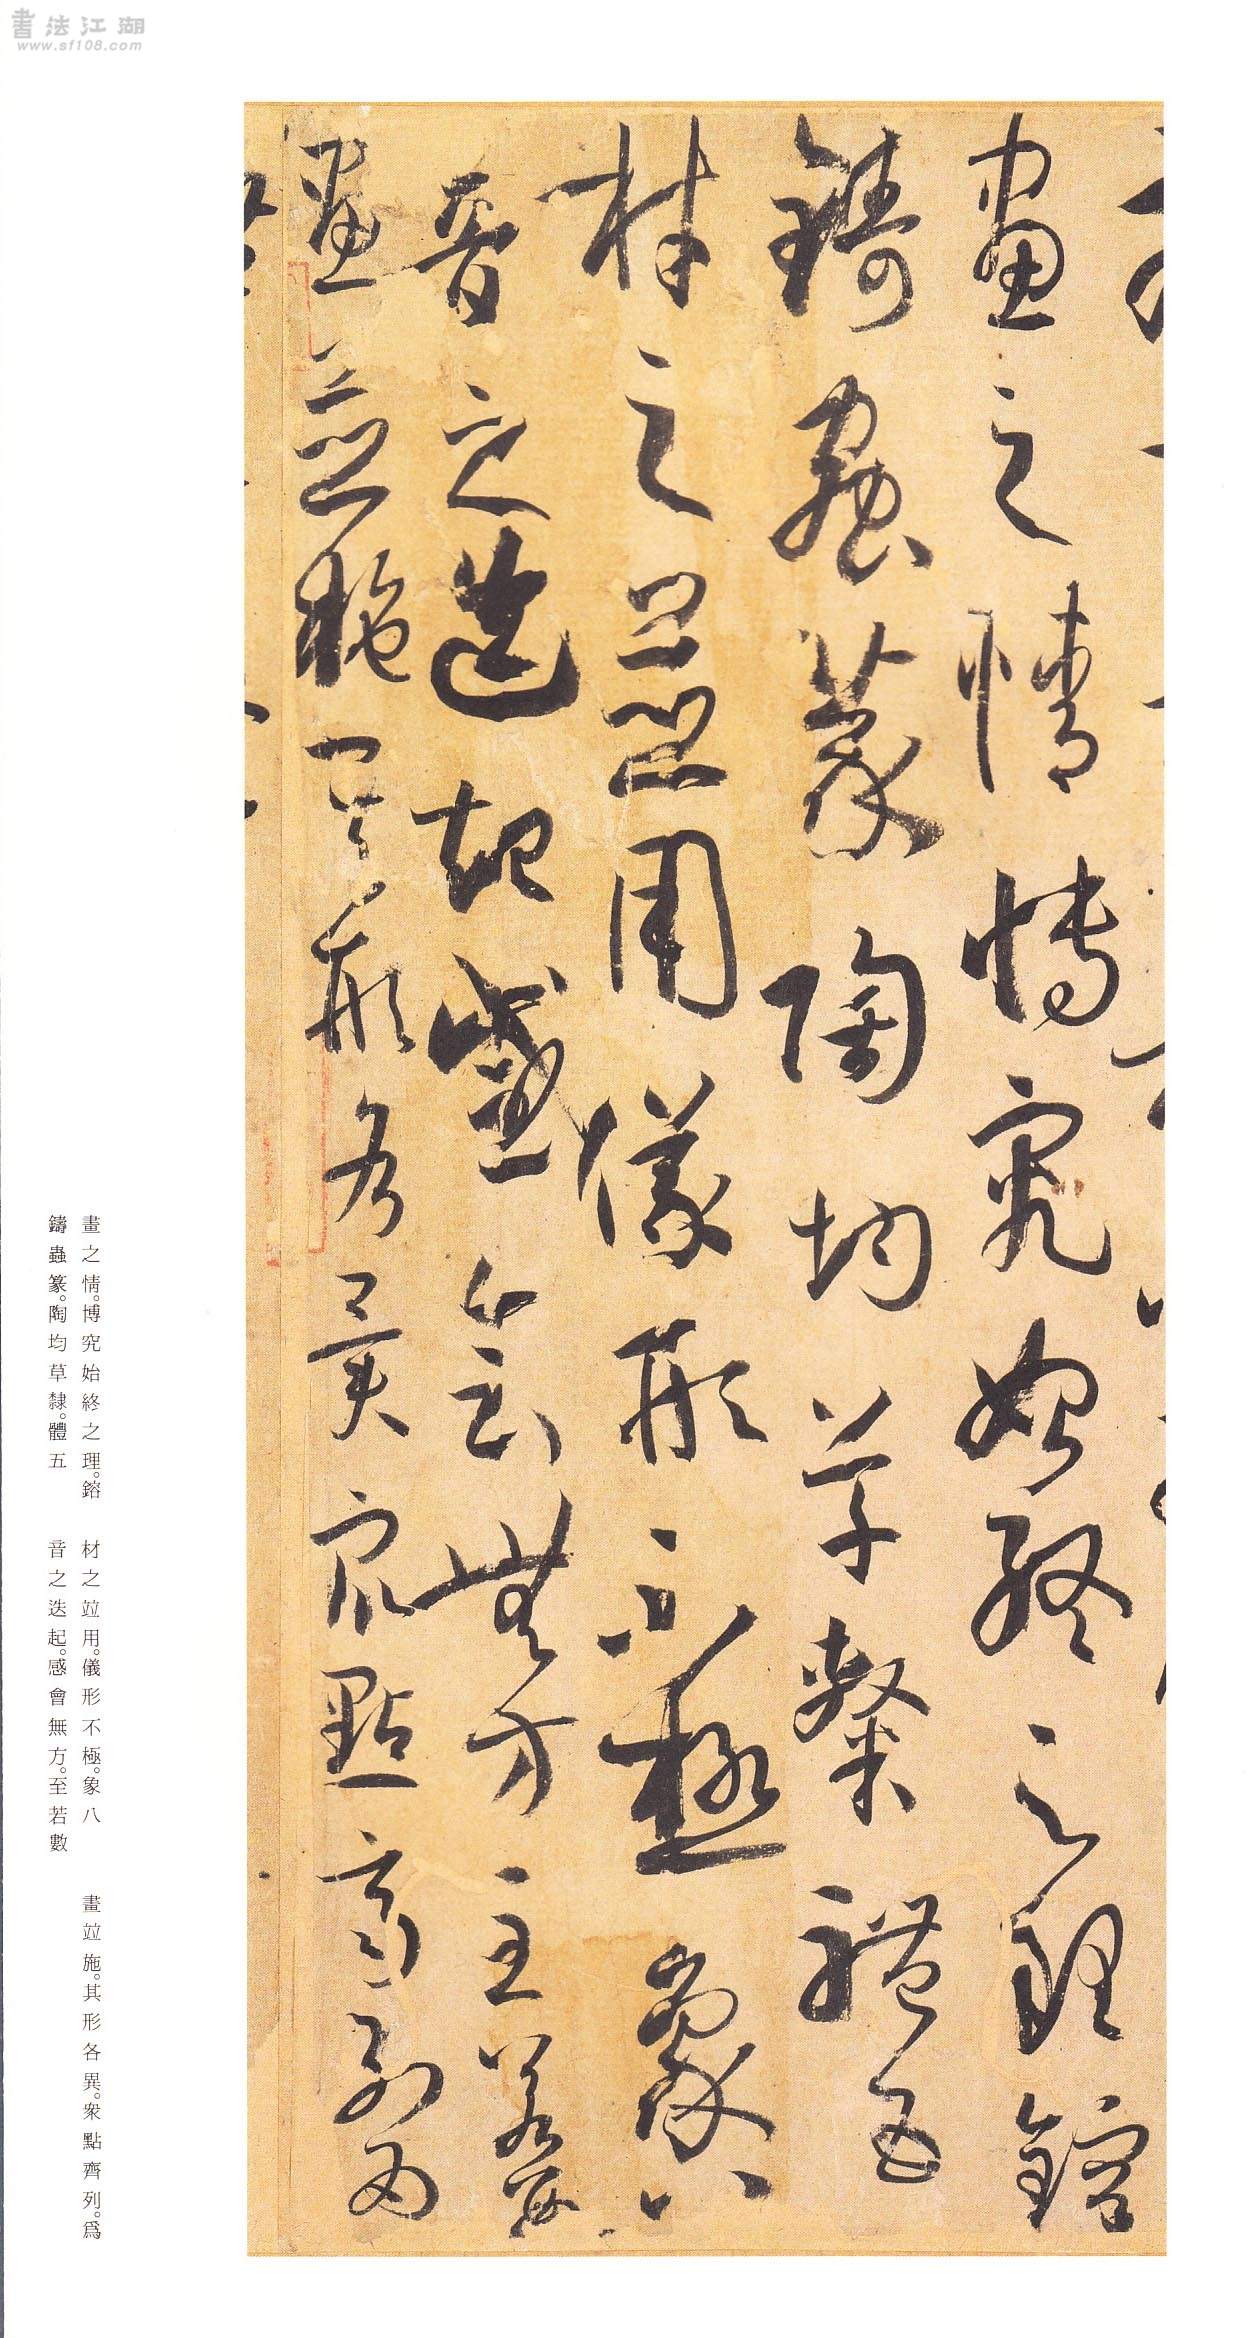 書法江湖
www.sf108.com
畫之情博究始終之理鎔
鑄蟲篆陶均草隸體五
材之並用儀形不極象八
音之迭起感會無方至若數
畫並施其形各異衆點齊列爲
畫之情。博究始終之理。鎔
鑄蟲篆。陶均草隸。體五
材之竝用。儀形不極。象八
音之迭起。感會無方。至若數
畫竝施。其形各異。衆點齊列。爲